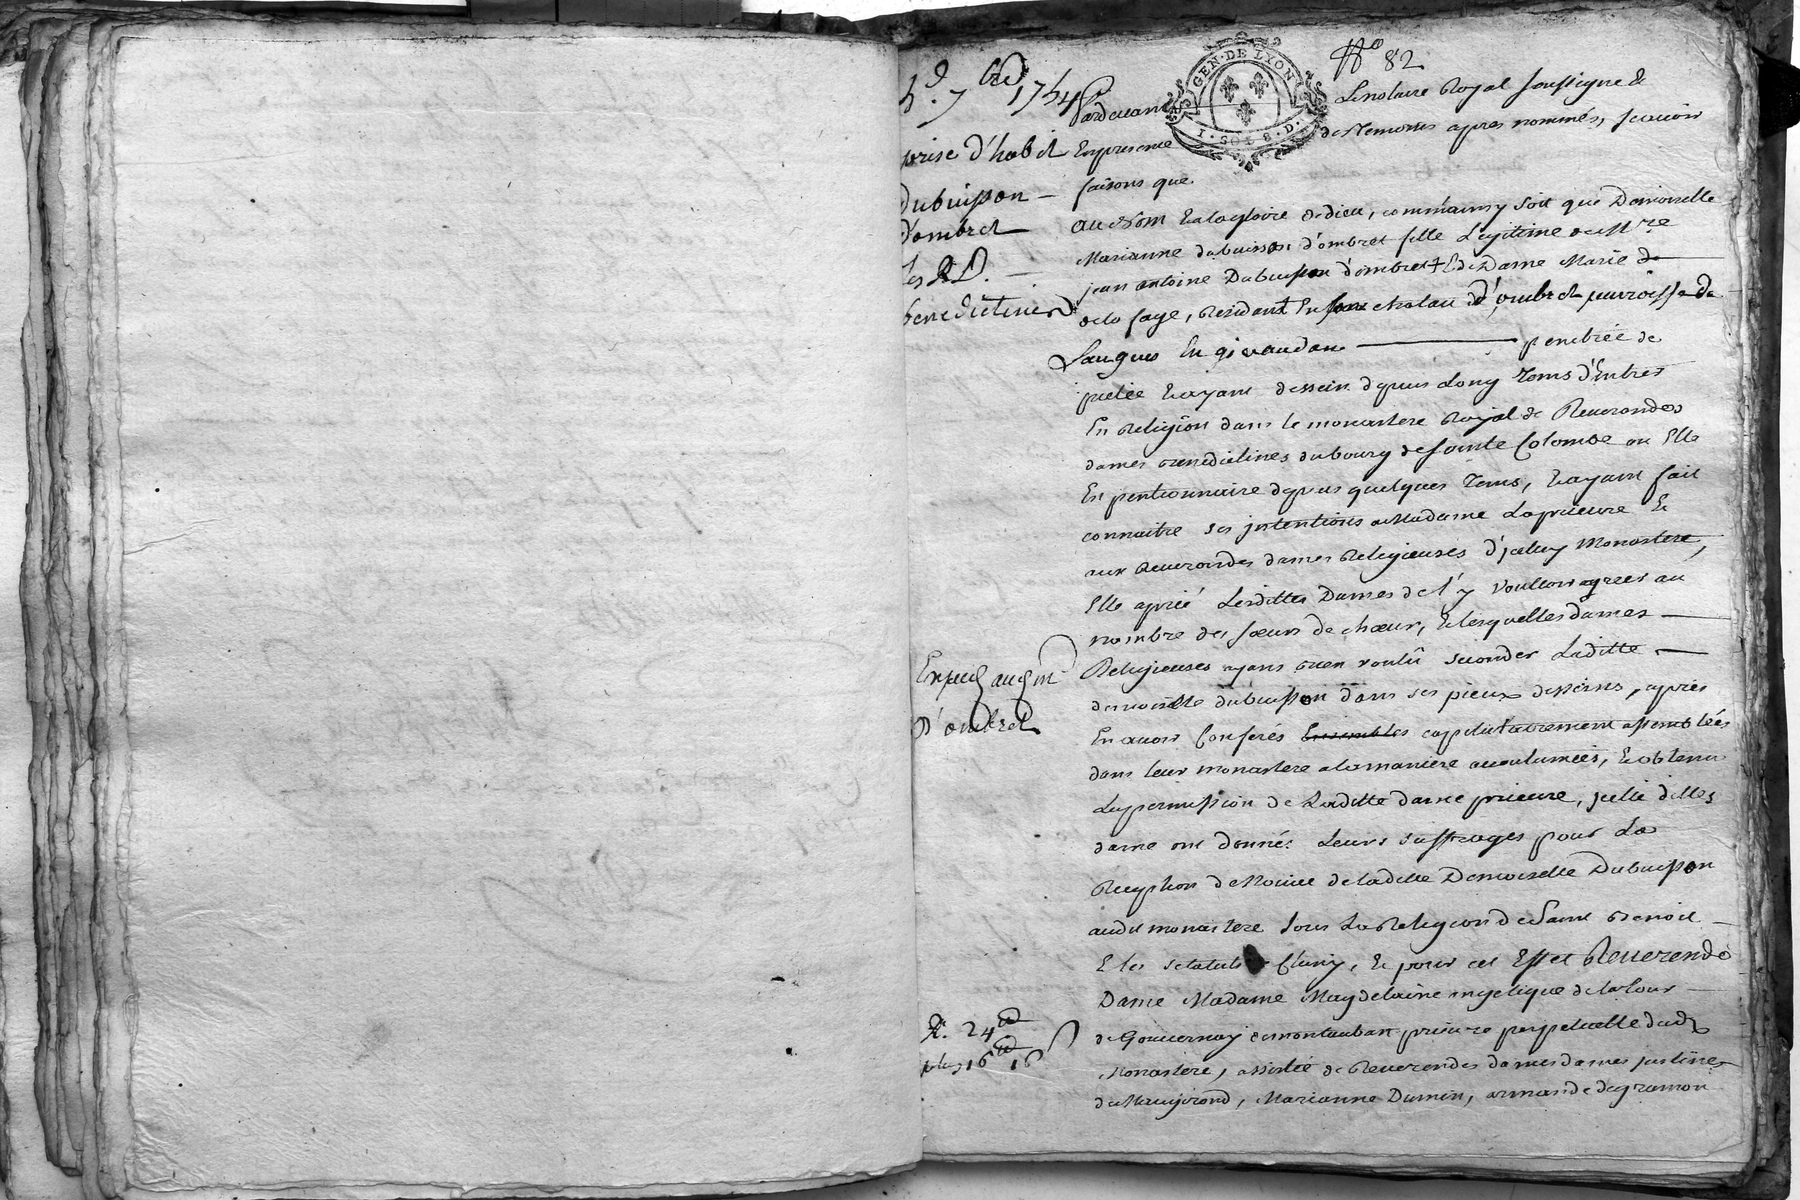 N° 82
5e 7bre 1754
GEN·DE LYON
1·SOLS·D·
prise d'habit
Dubuisson —
d'ombret
les R D. —
benedictines
Pardevant Le notaire Royal soussigné Et
En presence des temoins apres nommés, scavoir
faisons que
au Nom Et la gloire de dieu, comme ainsy soit que Demoiselle
Marianne dubuisson d'ombret fille Legitime de Mre
jean antoine Dubuisson d'ombret + & de Dame Marie de —
de la faye, Residant En son chateau d'ombret parroisse de
Saugues En givaudan ——— penétrée de
pietée Et ayant dessein depuis Long Tems d'Entrer
En Religion dans le monastere Royal de Reverendes
dames benedictines du bourg de sainte Colombe ou Elle
En pentionnaire depuis quelques Tems, Et ayant fait
connaitre ses jntentions a Madame La prieure Et
aux Reverendes dames Religieuses d'jceluy Monastere,
Elle a prié Lesdittes Dames de l'y Voulloir agreer au
nombre des sœurs de chœur, & lesquelles dames —
Religieuses ayans bien voulû seconder Laditte —
demoiselle dubuisson dans ses pieux desseins, apres
En avoir Conferés Ensembles capitulairement assemblées
dans leur monastere a la maniere accoutumées, Et obtenu
La permission de Laditte dame prieure, jcelle dittes
dame ont donnés Leurs suffrages pour La
Reception de Novice de laditte Demoiselle Dubuisson
audit monastere sous La Religion de Saint Benoit —
& les statuts de Cluny, Et pour cet Effet Reverende
Dame Madame Magdelaine angelique de la tour —
de Gouvernay de montauban prieure perpetuelle dudt
Monastere, assistée de Reverendes dames dames justine
de Maugirond, Marianne Dumein, armande degramon
Exped au Sr
D'ombret
R. 24
plus 16 16